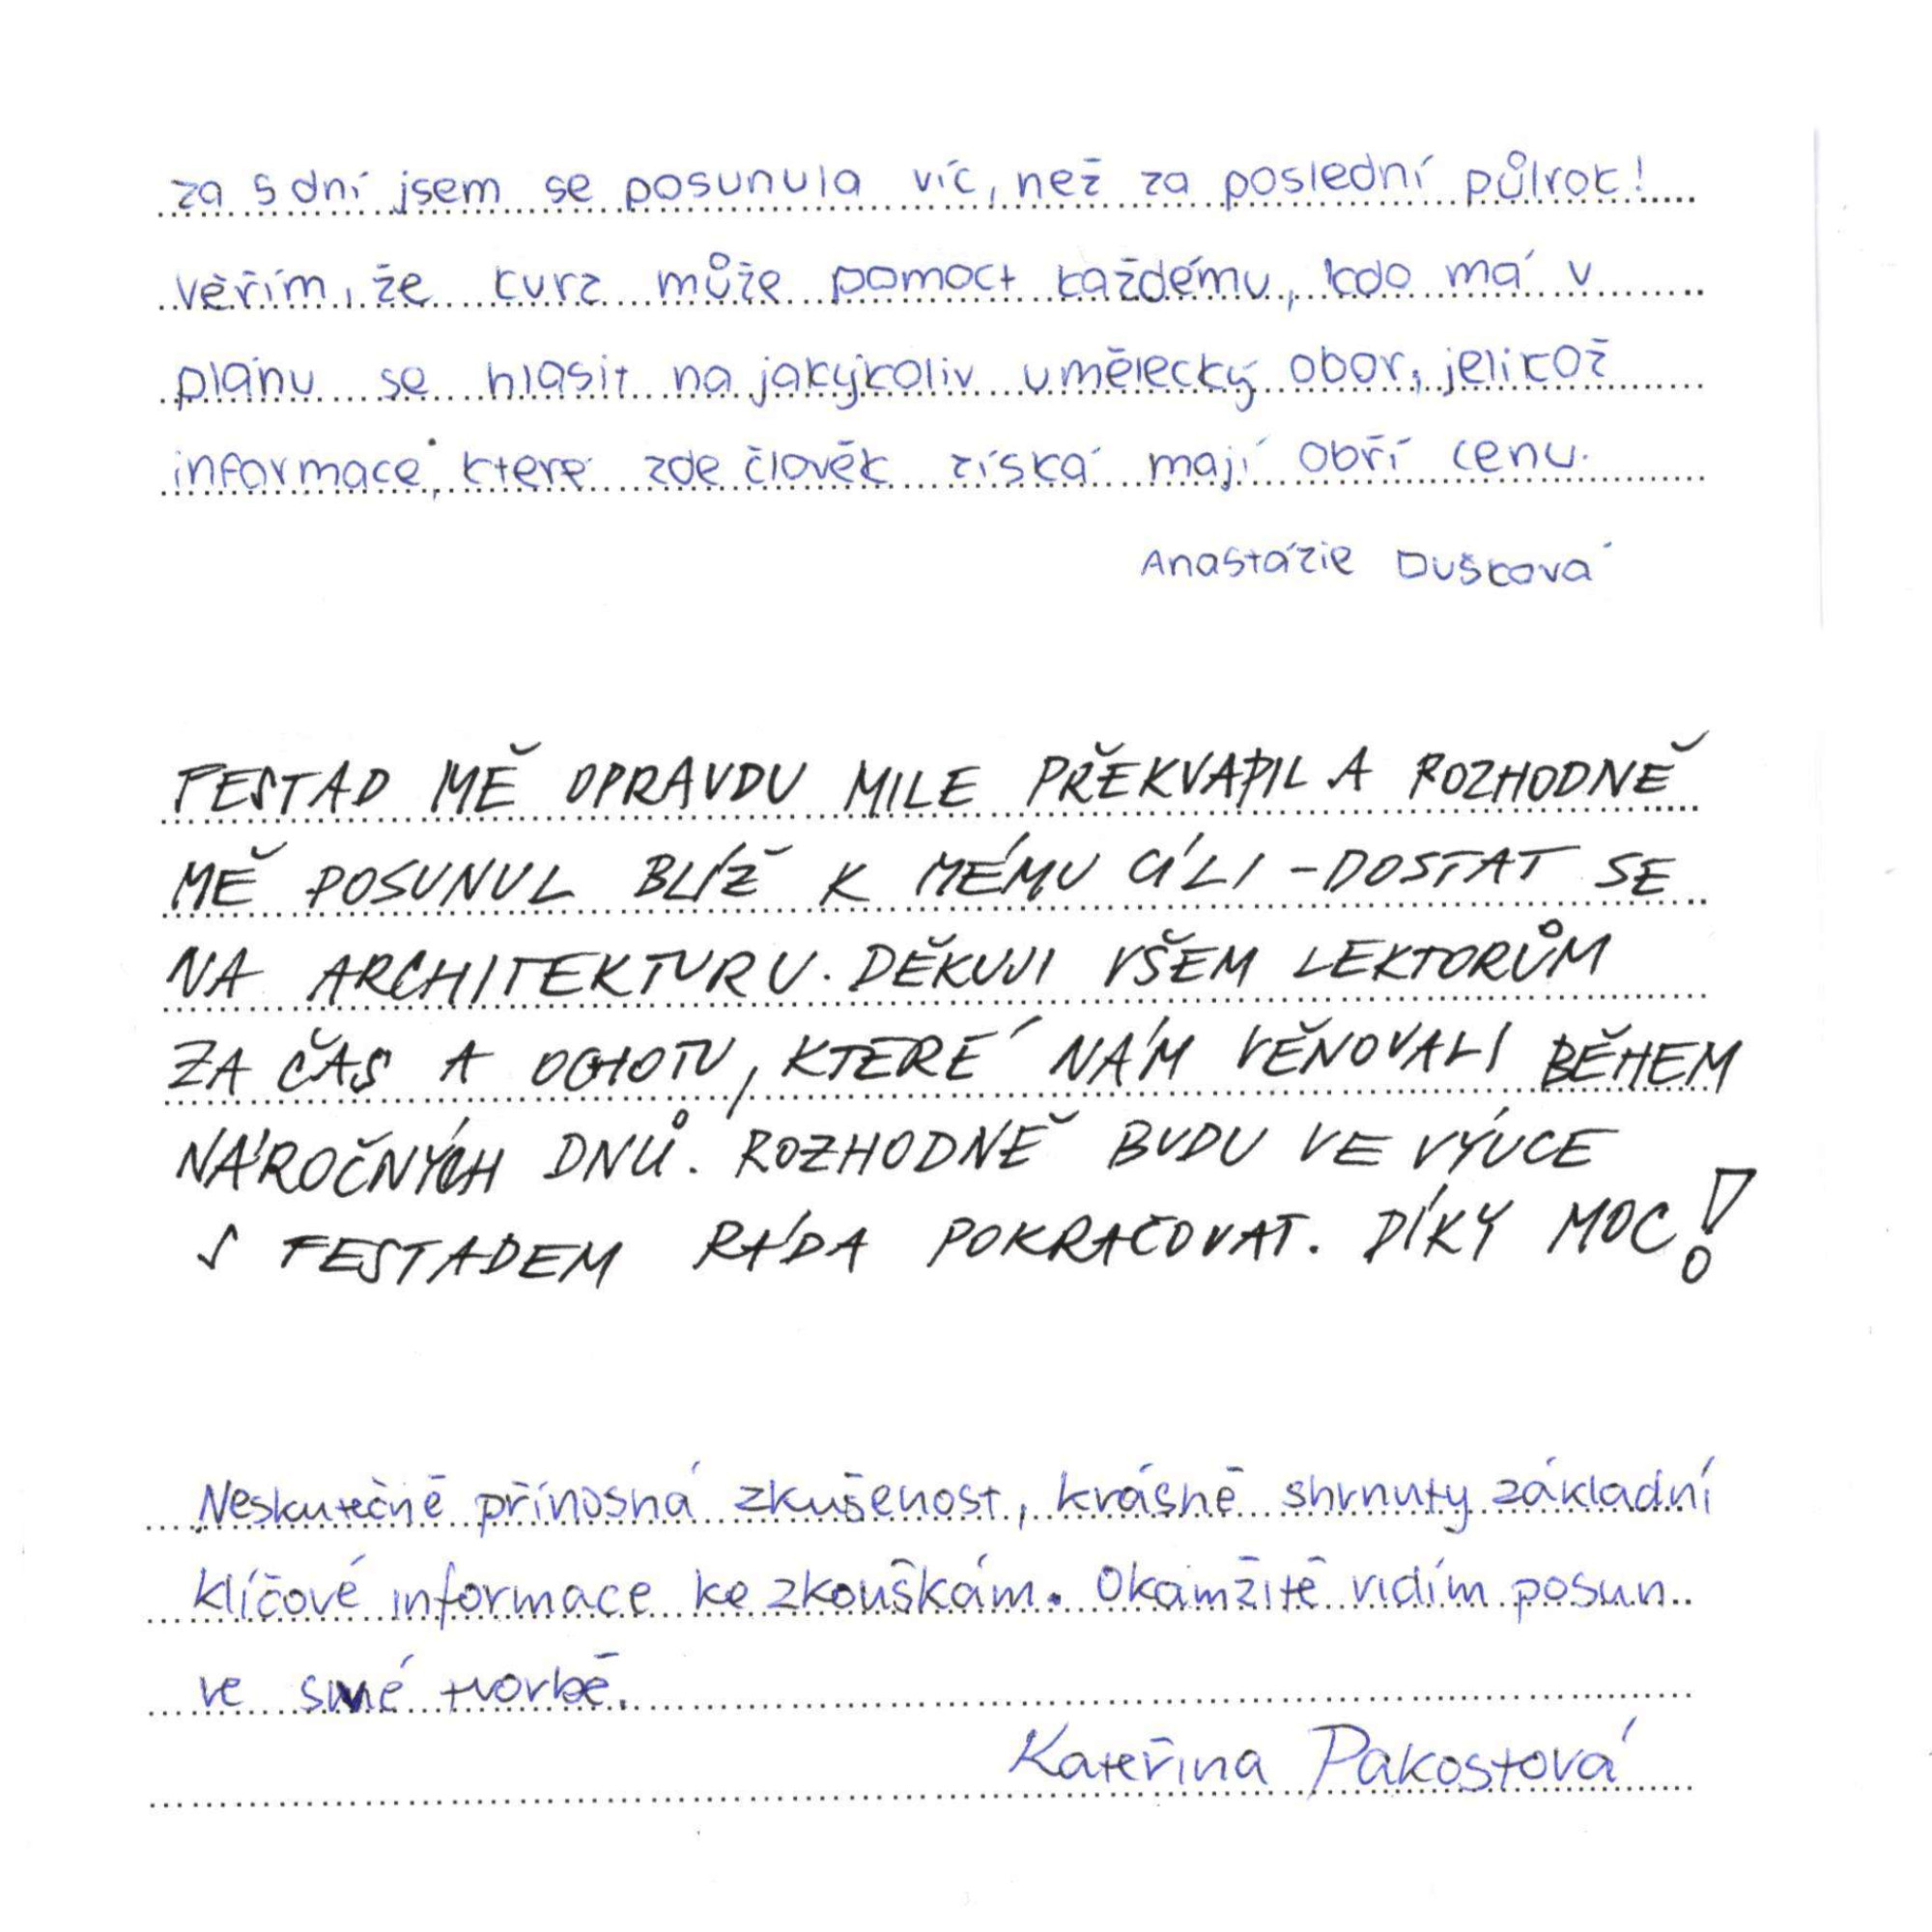 za 5 dní jsem se posunula víc, než za poslední půlrok!
věřím, že kurz může pomoct každému, kdo má v
plánu se hlásit na jakýkoliv umělecký obor, jelikož
informace, které zde člověk získá mají obří cenu.
Anastázie Dušková
FESTAD MĚ OPRAVDU MILE PŘEKVAPIL A ROZHODNĚ
MĚ POSUNUL BLÍŽ K MÉMU CÍLI - DOSTAT SE
NA ARCHITEKTURU. DĚKUJI VŠEM LEKTORŮM
ZA ČAS A OCHOTU, KTERÉ NÁM VĚNOVALI BĚHEM
NÁROČNÝCH DNŮ. ROZHODNĚ BUDU VE VÝUCE
S FESTADEM RÁDA POKRAČOVAT. DÍKY MOC!
Neskutečně přínosná zkušenost, krásně shrnuty základní
klíčové informace ke zkouškám. Okamžitě vidím posun
ve své tvorbě.
Kateřina Pakostová